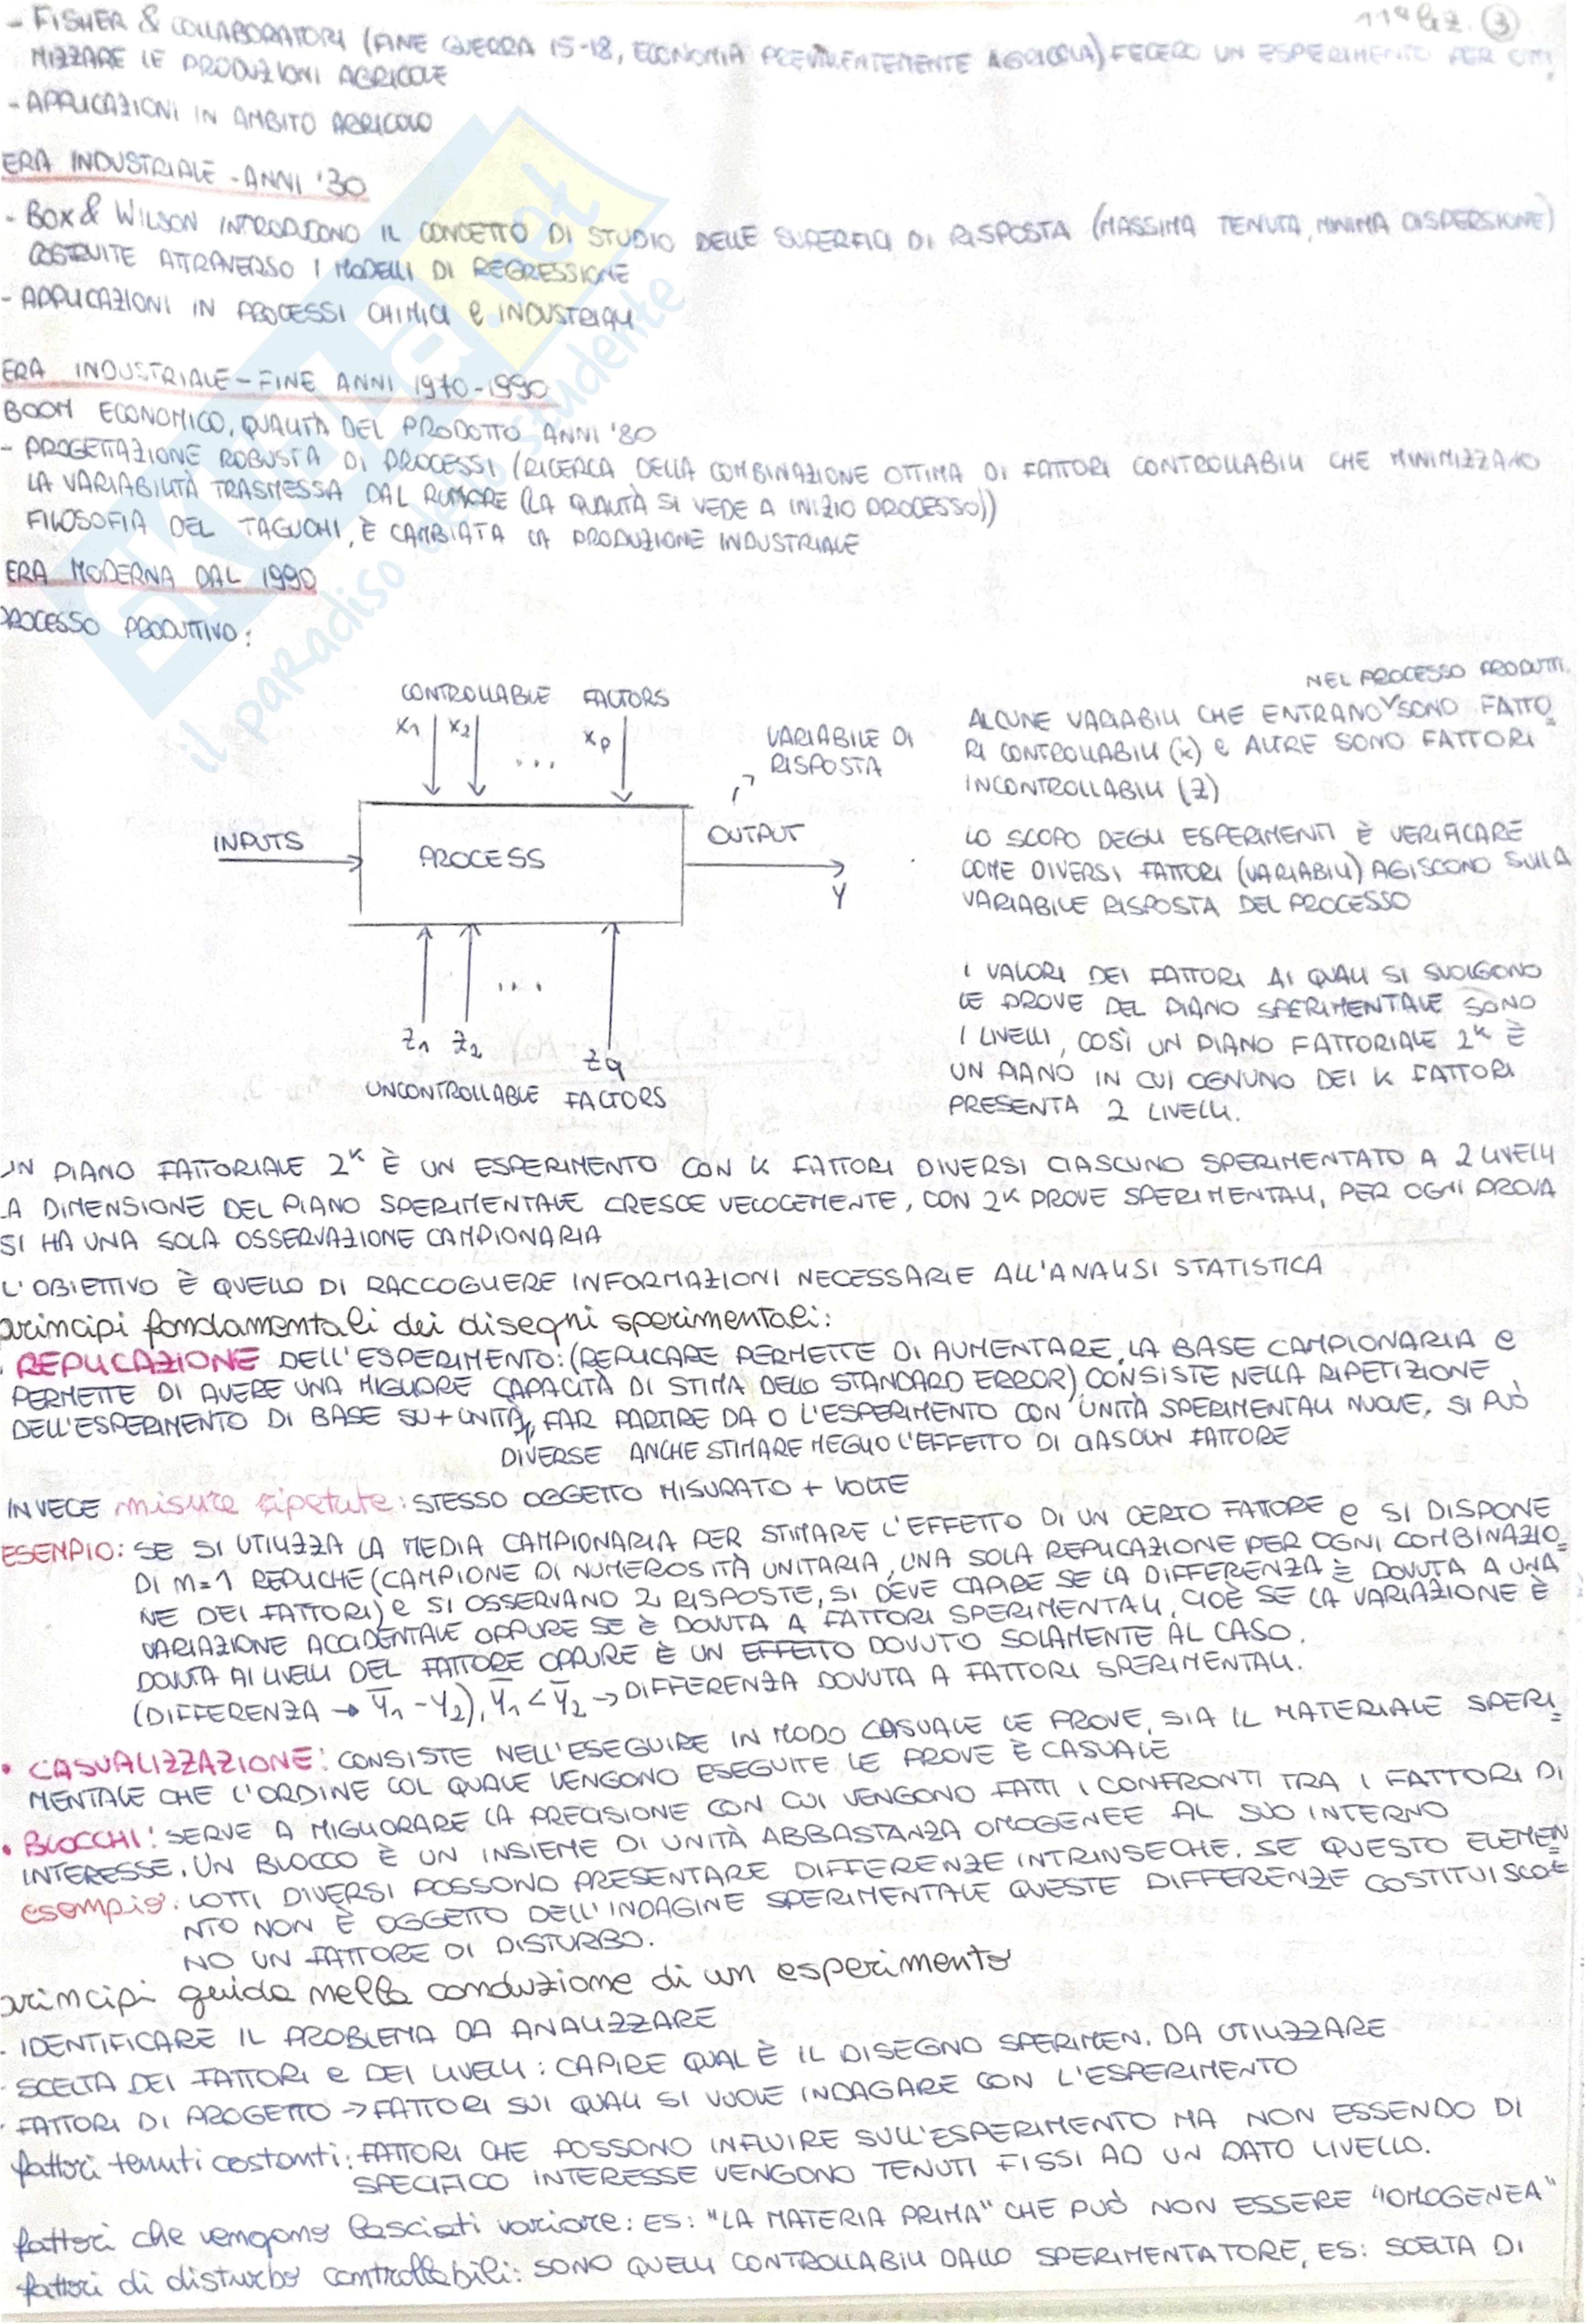 11ª lez. ③
- FISHER & COLLABORATORI (FINE GUERRA 15-18, ECONOMIA PREVALENTEMENTE AGRICOLA) FECERO UN ESPERIMENTO PER OTTI
MIZZARE LE PRODUZIONI AGRICOLE
- APPLICAZIONI IN AMBITO AGRICOLO
ERA INDUSTRIALE - ANNI '30
- BOX & WILSON INTRODUCONO IL CONCETTO DI STUDIO DELLE SUPERFICI DI RISPOSTA (MASSIMA TENUTA, MINIMA DISPERSIONE)
COSTRUITE ATTRAVERSO I MODELLI DI REGRESSIONE
- APPLICAZIONI IN PROCESSI CHIMICI e INDUSTRIALI
ERA INDUSTRIALE - FINE ANNI 1970-1990
BOOM ECONOMICO, QUALITÀ DEL PRODOTTO ANNI '80
- PROGETTAZIONE ROBUSTA DI PROCESSI (RICERCA DELLA COMBINAZIONE OTTIMA DI FATTORI CONTROLLABILI CHE MINIMIZZANO
LA VARIABILITÀ TRASMESSA DAL RUMORE (LA QUALITÀ SI VEDE A INIZIO PROCESSO))
FILOSOFIA DEL TAGUCHI, È CAMBIATA LA PRODUZIONE INDUSTRIALE
ERA MODERNA DAL 1990
PROCESSO PRODUTTIVO:
CONTROLLABLE FACTORS
x1 x2 ... xp
VARIABILE DI
RISPOSTA
INPUTS
PROCESS
OUTPUT
y
...
z1 z2 zq
UNCONTROLLABLE FACTORS
NEL PROCESSO PRODUTTI.
ALCUNE VARIABILI CHE ENTRANO SONO FATTO
RI CONTROLLABILI (x) e ALTRE SONO FATTORI
INCONTROLLABILI (z)
LO SCOPO DEGLI ESPERIMENTI È VERIFICARE
COME DIVERSI FATTORI (VARIABILI) AGISCONO SULLA
VARIABILE RISPOSTA DEL PROCESSO
I VALORI DEI FATTORI AI QUALI SI SVOLGONO
LE PROVE DEL PIANO SPERIMENTALE SONO
I LIVELLI, COSÌ UN PIANO FATTORIALE 2^K È
UN PIANO IN CUI OGNUNO DEI K FATTORI
PRESENTA 2 LIVELLI.
UN PIANO FATTORIALE 2^K È UN ESPERIMENTO CON K FATTORI DIVERSI CIASCUNO SPERIMENTATO A 2 LIVELLI
LA DIMENSIONE DEL PIANO SPERIMENTALE CRESCE VELOCEMENTE, CON 2^K PROVE SPERIMENTALI, PER OGNI PROVA
SI HA UNA SOLA OSSERVAZIONE CAMPIONARIA
L'OBIETTIVO È QUELLO DI RACCOGLIERE INFORMAZIONI NECESSARIE ALL'ANALISI STATISTICA
principi fondamentali dei disegni sperimentali:
. REPLICAZIONE DELL'ESPERIMENTO: (REPLICARE PERMETTE DI AUMENTARE LA BASE CAMPIONARIA e
PERMETTE DI AVERE UNA MIGLIORE CAPACITÀ DI STIMA DELLO STANDARD ERROR) CONSISTE NELLA RIPETIZIONE
DELL'ESPERIMENTO DI BASE SU + UNITÀ, FAR PARTIRE DA 0 L'ESPERIMENTO CON UNITÀ SPERIMENTALI NUOVE. SI PUÒ
DIVERSE ANCHE STIMARE MEGLIO L'EFFETTO DI CIASCUN FATTORE
INVECE misure ripetute: STESSO OGGETTO MISURATO + VOLTE
ESEMPIO: SE SI UTILIZZA LA MEDIA CAMPIONARIA PER STIMARE L'EFFETTO DI UN CERTO FATTORE e SI DISPONE
DI m=1 REPLICHE (CAMPIONE DI NUMEROSITÀ UNITARIA, UNA SOLA REPLICAZIONE PER OGNI COMBINAZIO
NE DEI FATTORI) e SI OSSERVANO 2 RISPOSTE, SI DEVE CAPIRE SE LA DIFFERENZA È DOVUTA A UNA
VARIAZIONE ACCIDENTALE OPPURE SE È DOVUTA A FATTORI SPERIMENTALI, CIOÈ SE LA VARIAZIONE È
DOVUTA AI LIVELLI DEL FATTORE OPPURE È UN EFFETTO DOVUTO SOLAMENTE AL CASO.
(DIFFERENZA → ȳ1 - y2), ȳ1 < ȳ2 → DIFFERENZA DOVUTA A FATTORI SPERIMENTALI.
• CASUALIZZAZIONE: CONSISTE NELL'ESEGUIRE IN MODO CASUALE LE PROVE, SIA IL MATERIALE SPERI
MENTALE CHE L'ORDINE COL QUALE VENGONO ESEGUITE LE PROVE È CASUALE
• BLOCCHI: SERVE A MIGLIORARE LA PRECISIONE CON CUI VENGONO FATTI I CONFRONTI TRA I FATTORI DI
INTERESSE. UN BLOCCO È UN INSIEME DI UNITÀ ABBASTANZA OMOGENEE AL SUO INTERNO
esempio: LOTTI DIVERSI POSSONO PRESENTARE DIFFERENZE INTRINSECHE. SE QUESTO ELEMEN
NTO NON È OGGETTO DELL'INDAGINE SPERIMENTALE QUESTE DIFFERENZE COSTITUISCO
NO UN FATTORE DI DISTURBO.
principi guida nella conduzione di un esperimento
- IDENTIFICARE IL PROBLEMA DA ANALIZZARE
- SCELTA DEI FATTORI e DEI LIVELLI: CAPIRE QUAL È IL DISEGNO SPERIMEN. DA UTILIZZARE
- FATTORI DI PROGETTO → FATTORI SUI QUALI SI VUOLE INDAGARE CON L'ESPERIMENTO
fattori tenuti costanti: FATTORI CHE POSSONO INFLUIRE SULL'ESPERIMENTO MA NON ESSENDO DI
SPECIFICO INTERESSE VENGONO TENUTI FISSI AD UN DATO LIVELLO.
fattori che vengono lasciati variare: ES: "LA MATERIA PRIMA" CHE PUÒ NON ESSERE "OMOGENEA"
fattori di disturbo controllabili: SONO QUELLI CONTROLLABILI DALLO SPERIMENTATORE, ES: SCELTA DI
SKUOLA.net
il paradiso dello studente